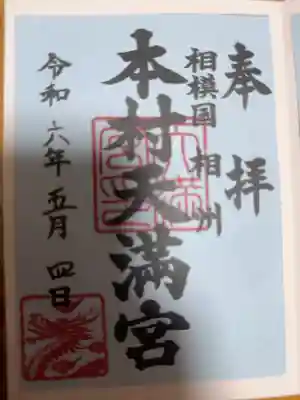 奉拝
相模国 相州
本村天満宮
令和六年五月四日